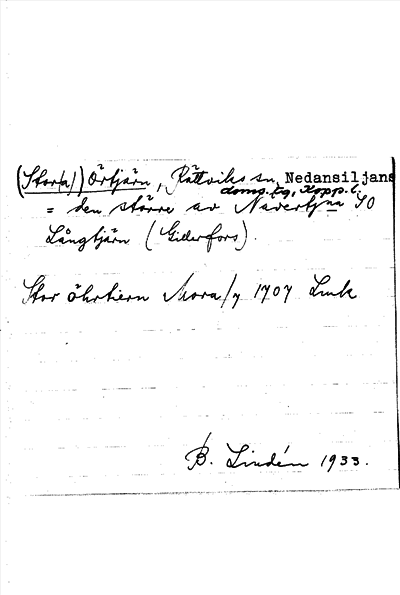 (Stor(a)) Örtjärn, Rättviks sn, Nedansiljans
doms. tg, Kopp. l.
= den större av Näverty na SO
Långtjärn (Gillerfors).
Stor öhrtiern Mora/7 1707 Lmk
B. Lindén 1933.